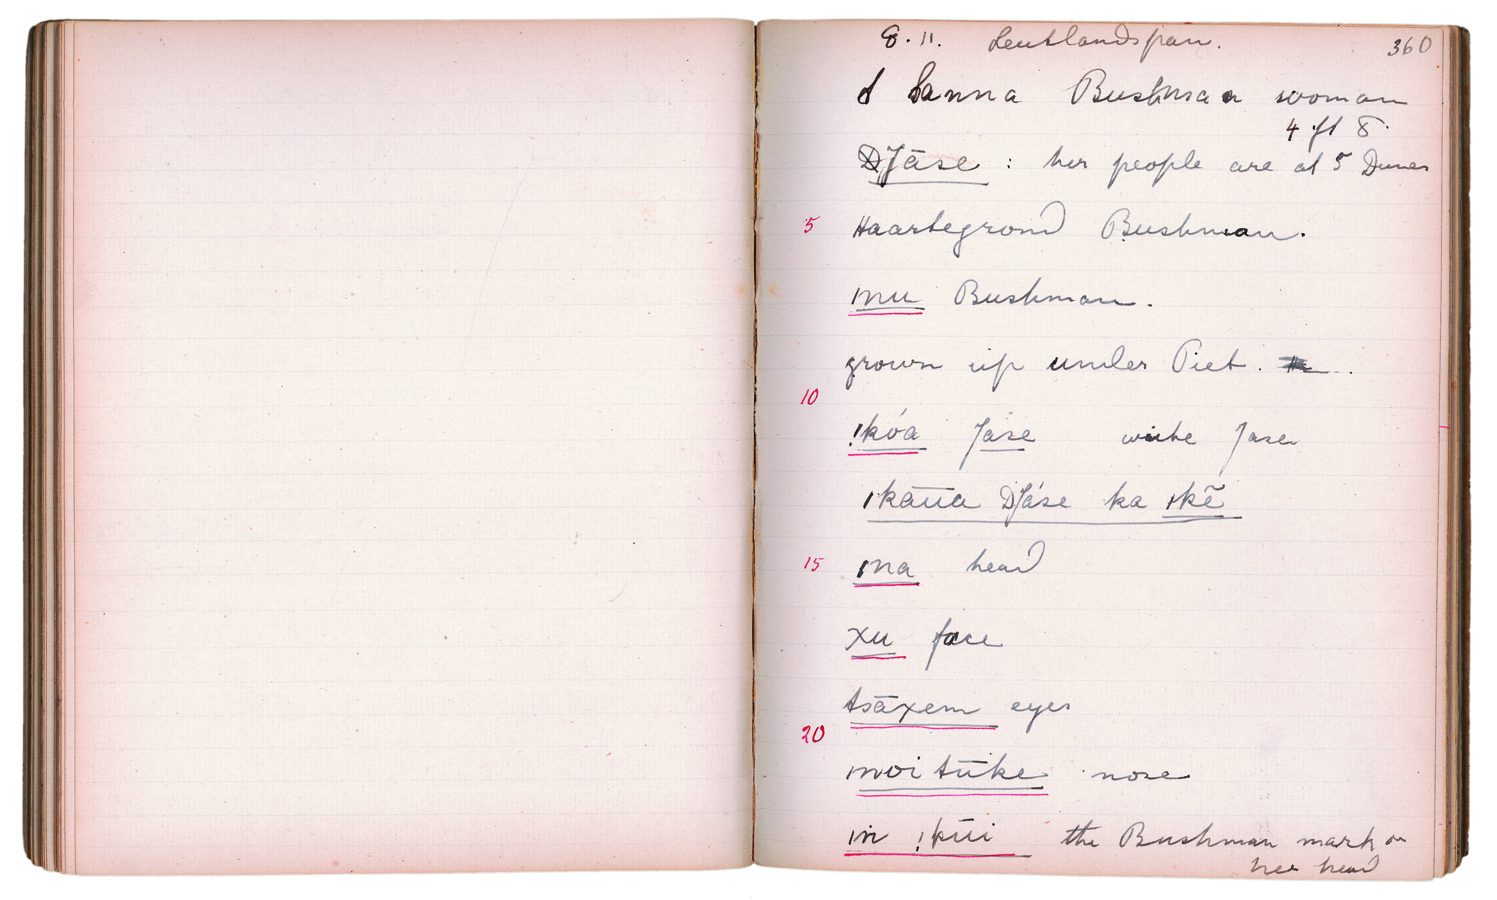 8.11. Leutlandspan. 360
Sanna Bushman woman
4 ft 8.
Jāse : her people are at 5 Dunes
5 Haartegrond Bushman.
ǀnu Bushman.
grown up under Piet.
10
ǃkóa Jase white Jase
ǀkāūa DJáse ka ǀkẽ
15 ǀna head
xu face
tsāxem eyes
20
ǀnoi tūke nose
ǀn ǃkūi the Bushman mark on
her head